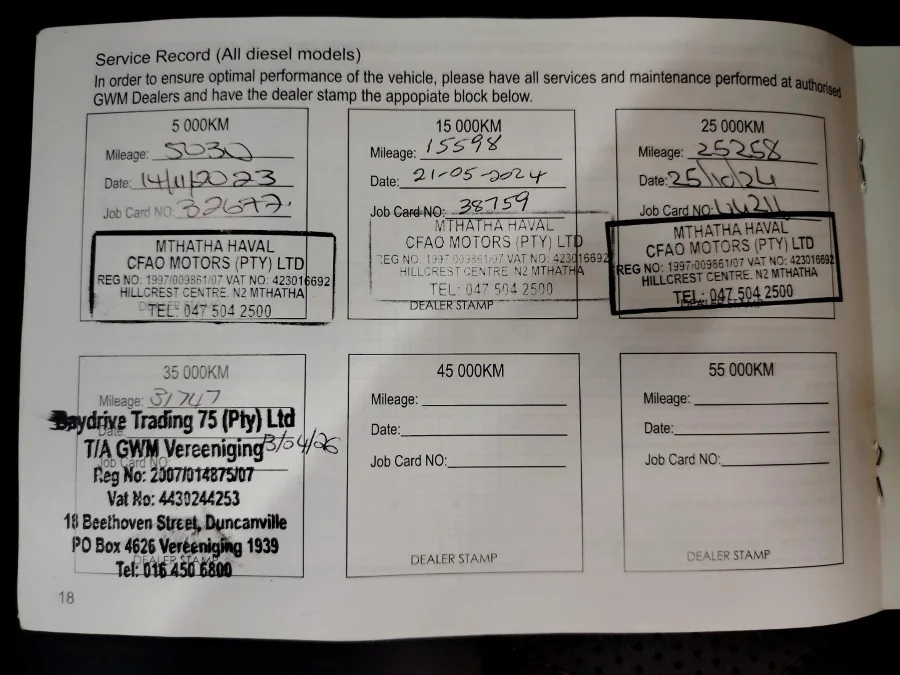 Service Record (All diesel models)
In order to ensure optimal performance of the vehicle, please have all services and maintenance performed at authorised
GWM Dealers and have the dealer stamp the appopiate block below.
5 000KM
Mileage: 5030
Date: 14/11/2023
Job Card NO: 32677.
MTHATHA HAVAL
CFAO MOTORS (PTY) LTD
REG NO: 1997/009861/07 VAT NO: 423016692
HILLCREST CENTRE. N2 MTHATHA
TEL: 047 504 2500
15 000KM
Mileage: 15598
Date: 21-05-2024
Job Card NO: 38759
MTHATHA HAVAL
CFAO MOTORS (PTY) LTD
REG NO: 1997/009861/07 VAT NO: 423016692
HILLCREST CENTRE. N2 MTHATHA
TEL: 047 504 2500
DEALER STAMP
25 000KM
Mileage: 25258
Date: 25/10/24
Job Card NO: 44211
MTHATHA HAVAL
CFAO MOTORS (PTY) LTD
REG NO: 1997/009861/07 VAT NO: 423016692
HILLCREST CENTRE. N2 MTHATHA
TEL: 047 504 2500
35 000KM
Mileage: 31747
Daydrive Trading 75 (Pty) Ltd
Date:
T/A GWM Vereeniging 13/04/26
Job Card NO:
Reg No: 2007/014875/07
Vat No: 4430244253
18 Beethoven Street, Duncanville
PO Box 4626 Vereeniging 1939
DEALER STAMP
Tel: 016 450 6800
45 000KM
Mileage:
Date:
Job Card NO:
DEALER STAMP
55 000KM
Mileage:
Date:
Job Card NO:
DEALER STAMP
18